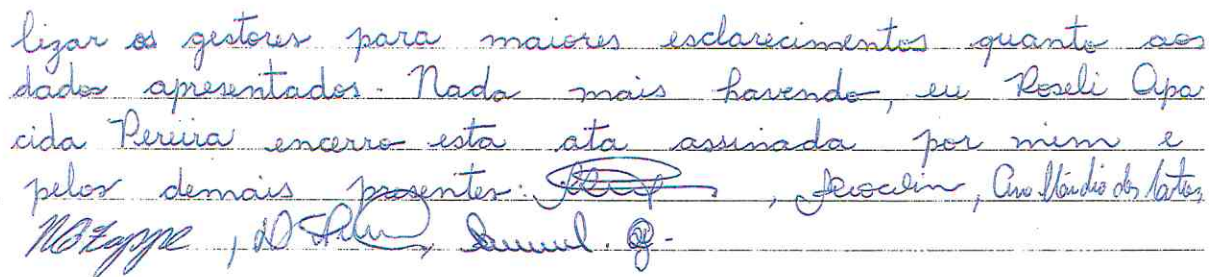 lizar os gestores para maiores esclarecimentos quanto aos
dados apresentados. Nada mais havendo, eu Roseli Apa
cida Pereira encerro esta ata assinada por mim e
pelos demais presentes: